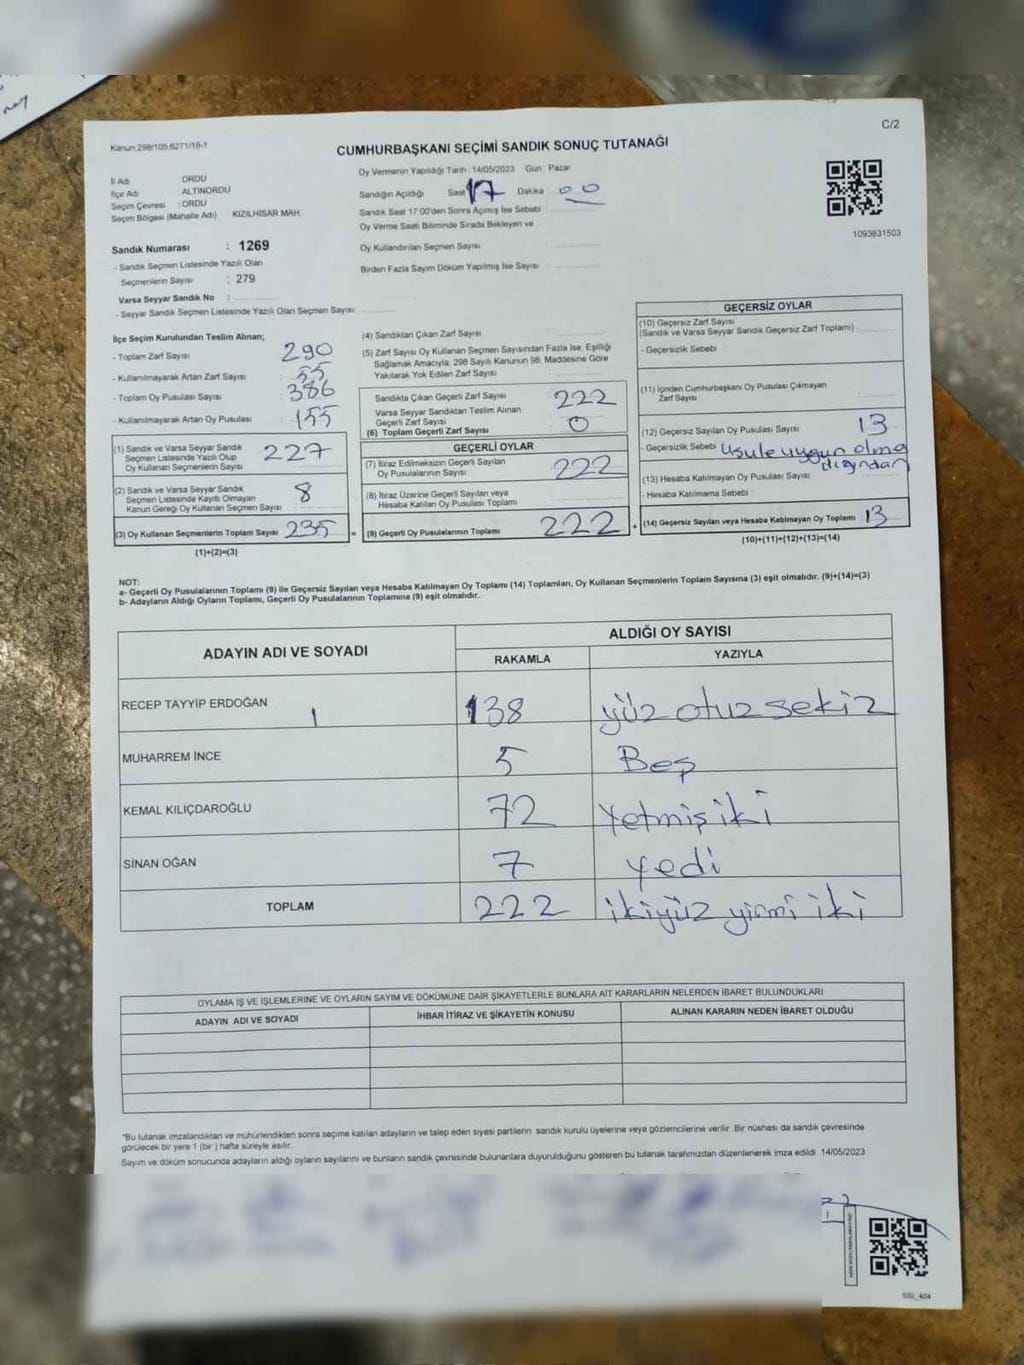 ney
C/2
Kanun,298/105,6271/18-1
CUMHURBAŞKANI SEÇİMİ SANDIK SONUÇ TUTANAĞI
İl Adı : ORDU
İlçe Adı : ALTINORDU
Seçim Çevresi : ORDU
Seçim Bölgesi (Mahalle Adı) KIZILHİSAR MAH.
Sandık Numarası : 1269
- Sandık Seçmen Listesinde Yazılı Olan
Seçmenlerin Sayısı : 279
Varsa Seyyar Sandık No :
- Seyyar Sandık Seçmen Listesinde Yazılı Olan Seçmen Sayısı
Oy Vermenin Yapıldığı Tarih : 14/05/2023 Gün : Pazar
Sandığın Açıldığı Saat 17 Dakika 00
Sandık Saat 17:00'den Sonra Açılmış İse Sebebi :
Oy Verme Saati Bitiminde Sırada Bekleyen ve
Oy Kullandırılan Seçmen Sayısı :
Birden Fazla Sayım Döküm Yapılmış İse Sayısı :
1093631503
İlçe Seçim Kurulundan Teslim Alınan;
- Toplam Zarf Sayısı : 290
- Kullanılmayarak Artan Zarf Sayısı : 55
- Toplam Oy Pusulası Sayısı : 386
- Kullanılmayarak Artan Oy Pusulası : 155
(1) Sandık ve Varsa Seyyar Sandık
Seçmen Listesinde Yazılı Olup
Oy Kullanan Seçmenlerin Sayısı 227
(2) Sandık ve Varsa Seyyar Sandık
Seçmen Listesinde Kayıtlı Olmayan
Kanun Gereği Oy Kullanan Seçmen Sayısı 8
(3) Oy Kullanan Seçmenlerin Toplam Sayısı 235 =
(1)+(2)=(3)
(4) Sandıktan Çıkan Zarf Sayısı :
(5) Zarf Sayısı Oy Kullanan Seçmen Sayısından Fazla İse, Eşitliği
Sağlamak Amacıyla, 298 Sayılı Kanunun 98. Maddesine Göre
Yakılarak Yok Edilen Zarf Sayısı :
Sandıkta Çıkan Geçerli Zarf Sayısı : 222
Varsa Seyyar Sandıktan Teslim Alınan
Geçerli Zarf Sayısı : 0
(6) Toplam Geçerli Zarf Sayısı :
GEÇERLİ OYLAR
(7) İtiraz Edilmeksizin Geçerli Sayılan
Oy Pusulalarının Sayısı : 222
(8) İtiraz Üzerine Geçerli Sayılan veya
Hesaba Katılan Oy Pusulası Toplamı :
(9) Geçerli Oy Pusulalarının Toplamı : 222 +
GEÇERSİZ OYLAR
(10) Geçersiz Zarf Sayısı
(Sandık ve Varsa Seyyar Sandık Geçersiz Zarf Toplamı) :
- Geçersizlik Sebebi :
(11) İçinden Cumhurbaşkanı Oy Pusulası Çıkmayan
Zarf Sayısı :
(12) Geçersiz Sayılan Oy Pusulası Sayısı : 13
- Geçersizlik Sebebi : Usule uygun olma
dığından
(13) Hesaba Katılmayan Oy Pusulası Sayısı :
- Hesaba Katılmama Sebebi :
(14) Geçersiz Sayılan veya Hesaba Katılmayan Oy Toplamı : 13
(10)+(11)+(12)+(13)=(14)
NOT:
a- Geçerli Oy Pusulalarının Toplamı (9) ile Geçersiz Sayılan veya Hesaba Katılmayan Oy Toplamı (14) Toplamları, Oy Kullanan Seçmenlerin Toplam Sayısına (3) eşit olmalıdır. (9)+(14)=(3)
b- Adayların Aldığı Oyların Toplamı, Geçerli Oy Pusulalarının Toplamına (9) eşit olmalıdır.
ADAYIN ADI VE SOYADI ALDIĞI OY SAYISI
RAKAMLA YAZIYLA
RECEP TAYYİP ERDOĞAN 138 yüz otuz sekiz
MUHARREM İNCE 5 Beş
KEMAL KILIÇDAROĞLU 72 Yetmiş iki
SİNAN OĞAN 7 Yedi
TOPLAM 222 ikiyüz yirmi iki
OYLAMA İŞ VE İŞLEMLERİNE VE OYLARIN SAYIM VE DÖKÜMÜNE DAİR ŞİKAYETLERLE BUNLARA AİT KARARLARIN NELERDEN İBARET BULUNDUKLARI
ADAYIN ADI VE SOYADI İHBAR İTİRAZ VE ŞİKAYETİN KONUSU ALINAN KARARIN NEDEN İBARET OLDUĞU
*Bu tutanak imzalandıktan ve mühürlendikten sonra seçime katılan adayların ve talep eden siyasi partilerin sandık kurulu üyelerine veya gözlemcilerine verilir. Bir nüshası da sandık çevresinde
görülecek bir yere 1 (bir ) hafta süreyle asılır.
Sayım ve döküm sonucunda adayların aldığı oyların sayılarını ve bunların sandık çevresinde bulunanlara duyurulduğunu gösteren bu tutanak tarafımızdan düzenlenerek imza edildi. 14/05/2023
SSI_404